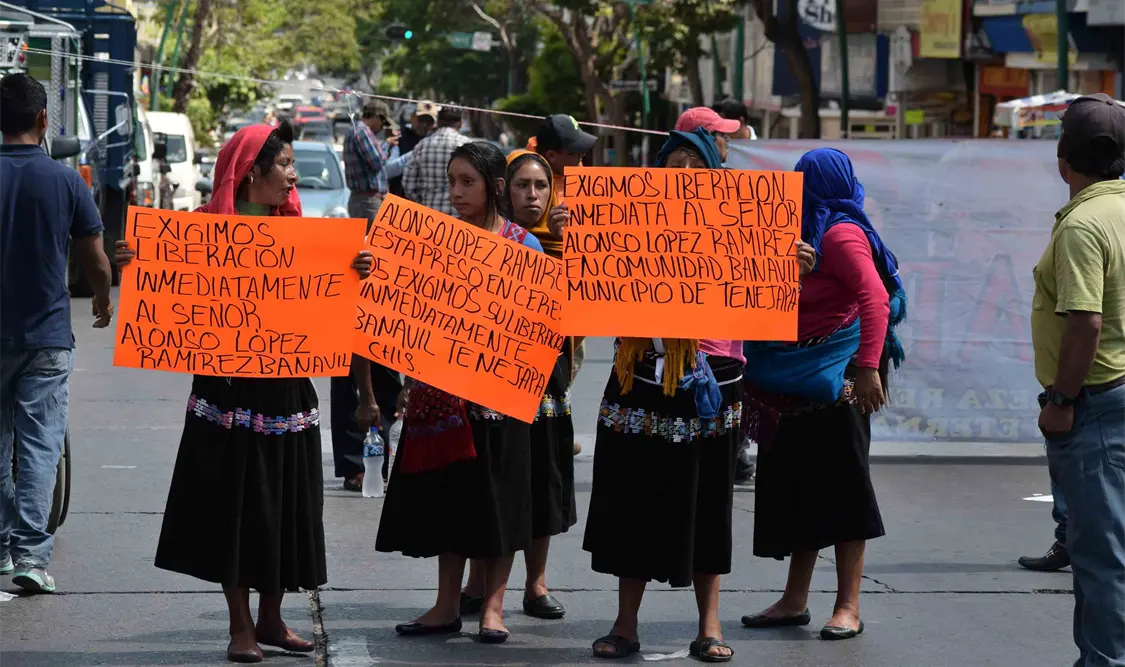 EXIGIMOS
LIBERACIÓN
INMEDIATAMENTE
AL SEÑOR
ALONSO LÓPEZ
RAMIREZ. BANAVIL
ALONSO LOPEZ RAMIREZ
ESTA PRESO EN CERES
EXIGIMOS SU LIBERACIO
INMEDIATAMENTE
BANAVIL TENEJAPA
CHIS.
EXIGIMOS LIBERACION
INMEDIATA AL SEÑOR
ALONSO LOPEZ RAMIREZ
EN COMUNIDAD BANAVIL
MUNICIPIO DE TENEJAPA